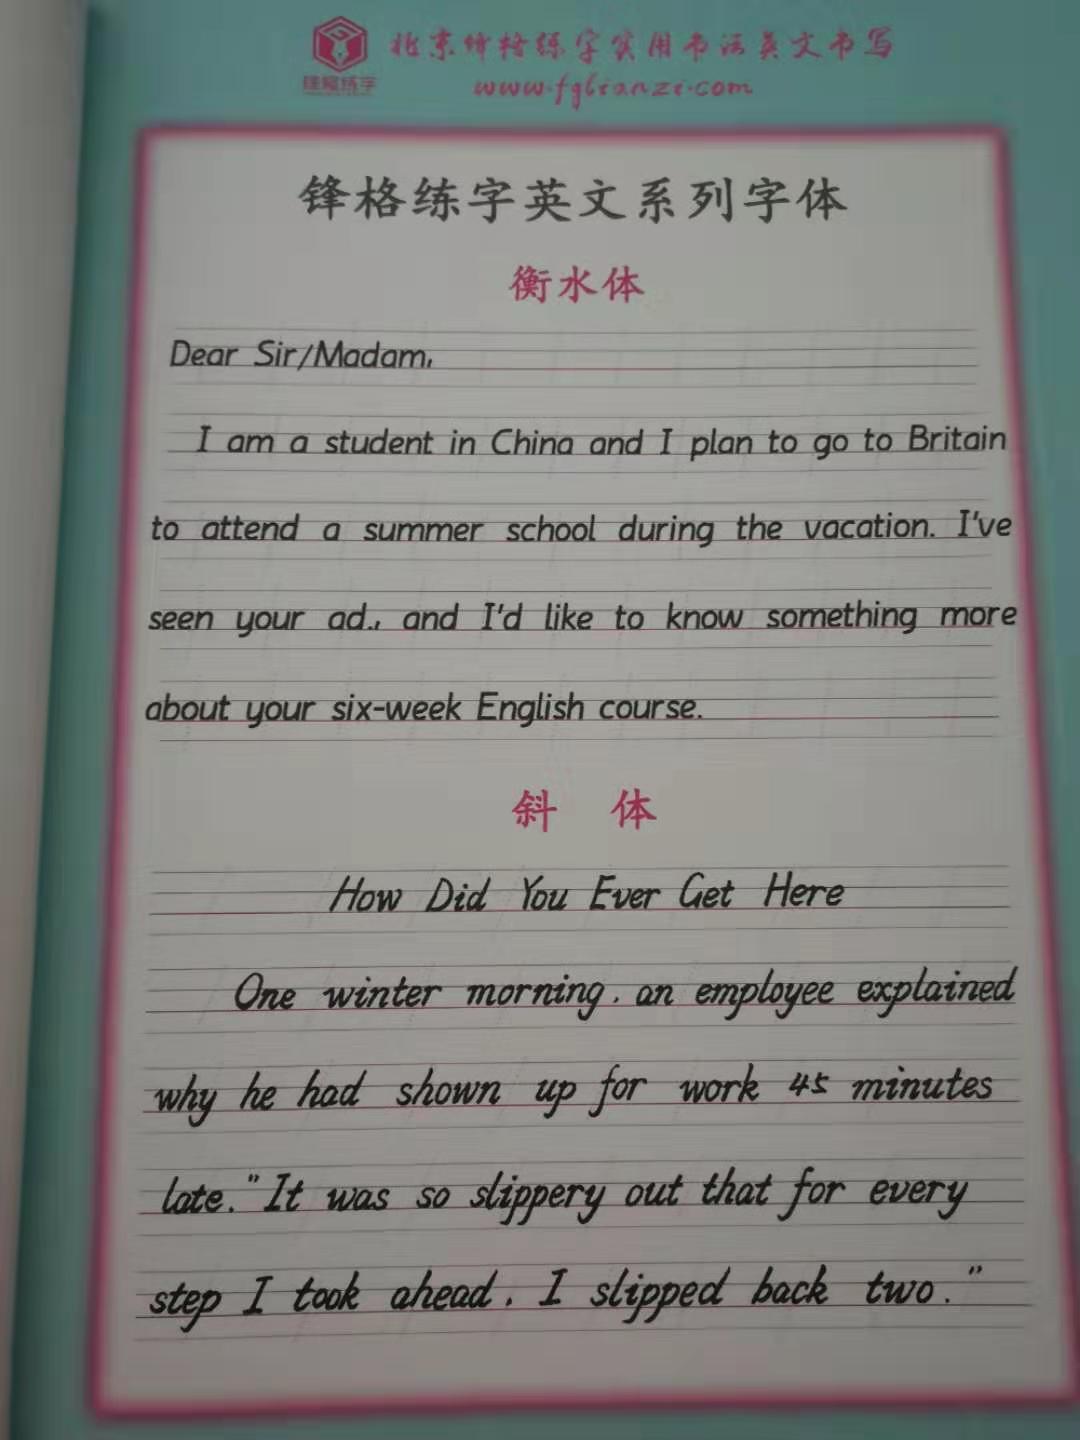 北京锋格练字实用书法英文书写
锋格练字
www.fglianzi.com
锋格练字英文系列字体
衡水体
Dear Sir/Madam,
I am a student in China and I plan to go to Britain
to attend a summer school during the vacation. I've
seen your ad., and I'd like to know something more
about your six-week English course.
斜 体
How Did You Ever Get Here
One winter morning, an employee explained
why he had shown up for work 45 minutes
late."It was so slippery out that for every
step I took ahead, I slipped back two."